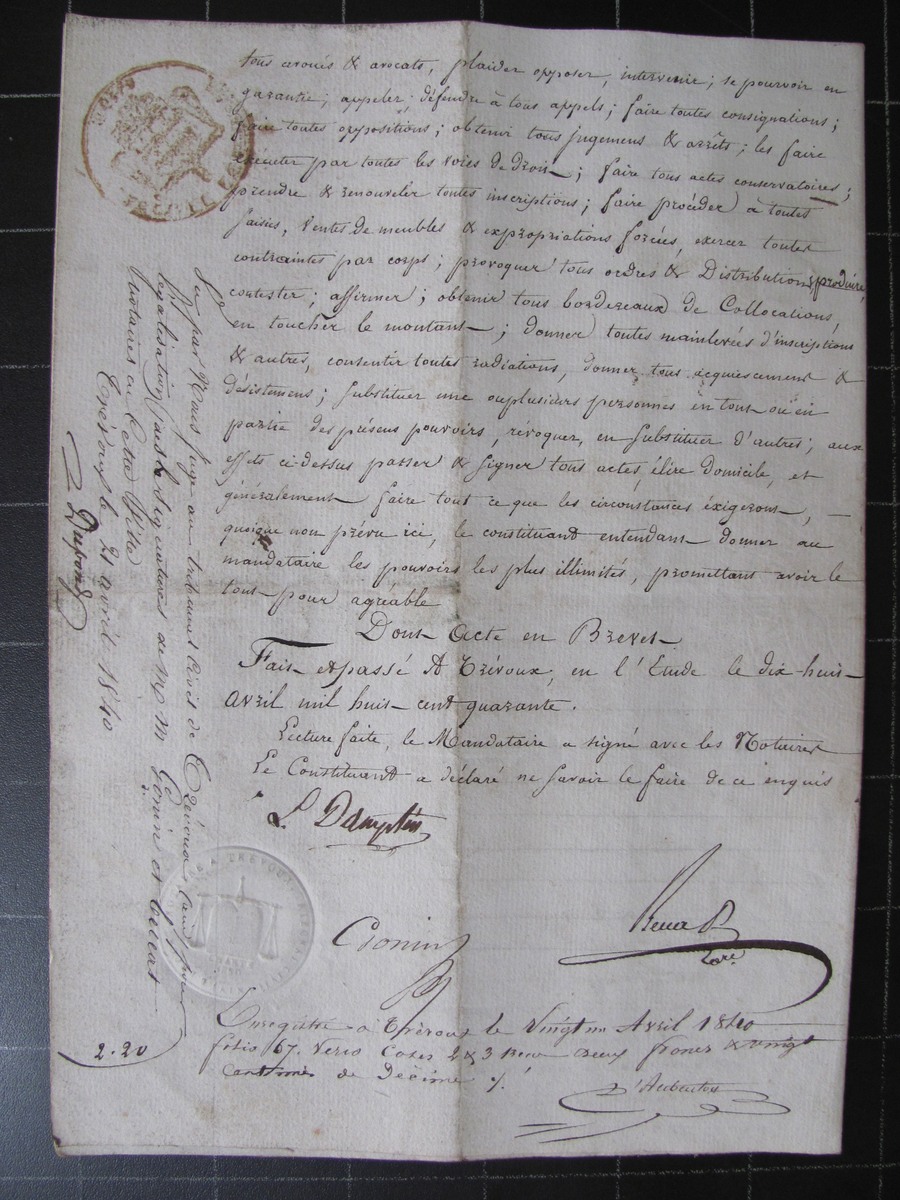 tous avoués & avocats, plaider opposer, intervenir; se pourvoir en
garantie; appeler; défendre à tous appels; faire toutes consignations;
faire toutes oppositions; obtenir tous jugemens & arrêts; les faire
exécuter par toutes les voies de droit; faire tous actes conservatoires;
prendre & renouveler toutes inscriptions; faire procéder à toutes
saisies, ventes de meubles & expropriations forcées, exercer toutes
contraintes par corps; provoquer tous ordres & Distributions, produire,
contester; affirmer; obtenir tous bordereaux de Collocations,
en toucher le montant; donner toutes mainlevées d'inscriptions
& autres, consentir toutes radiations, donner tous acquiescement &
désistemens; substituer une ou plusieurs personnes en tout ou en
partie des présens pouvoirs, révoquer, en substituer d'autres; aux
effets ci-dessus passer & signer tous actes, élire domicile, et
généralement faire tout ce que les circonstances éxigeront, —
quoique non prévu ici, le constituant entendant donner au
mandataire les pouvoirs les plus illimités, promettant avoir le
tout pour agréable
Dont Acte en Brevet
Fait et passé A Trévoux, en l'Etude le dix-huit
Avril mil huit cent quarante.
Lecture faite, le Mandataire a signé avec les Notaires
Le Constituant a déclaré ne savoir le faire de ce enquis
L. Damptin
Gonin
Enregistré a Trévoux le Vingt un Avril 1840
folio 67. verso Cases 2 & 3 Reçu deux francs & vingt
Centimes de Décime
D'Aubenton
Vu par Nous juge au tribunal Civil de Trévoux
legalisation des signatures de MM Gonin et
Notaires en cette Ville
Trévoux le 21 avril 1840
Dupond
2.20